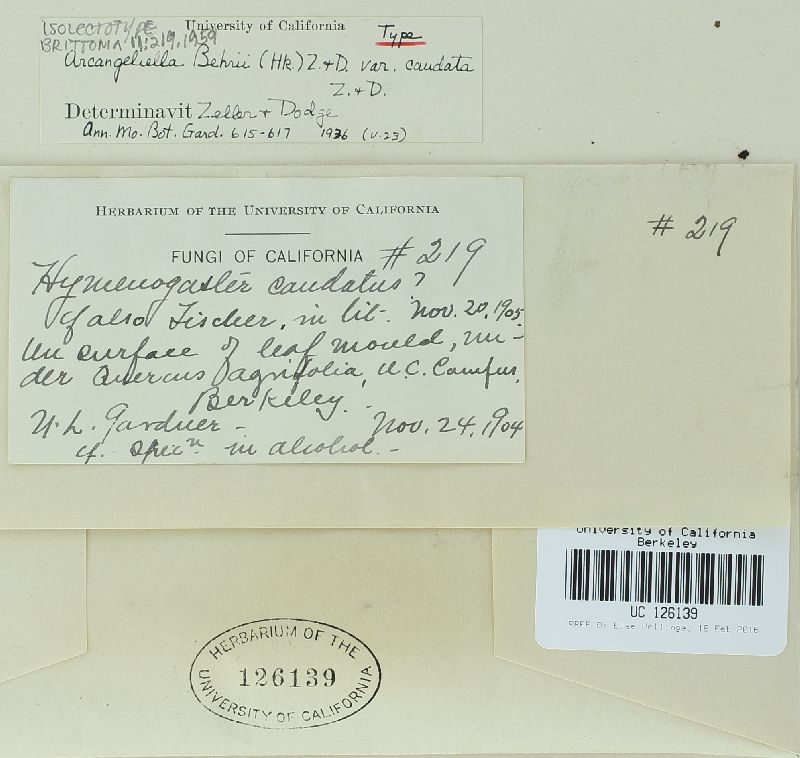 ISOLECTOTYPE University of California Type
BRITTONIA 11:219, 1959
Arcangeliella Behrii (Hk.) Z.+D. var. caudata
Z.+D.
Determinavit Zeller + Dodge
Ann. Mo. Bot. Gard. 615-617 1936 (v.23)
HERBARIUM OF THE UNIVERSITY OF CALIFORNIA
FUNGI OF CALIFORNIA # 219
# 219
Hymenogaster caudatus?
cf also Fischer, in lit. Nov. 20, 1905
On surface of leaf mould, un-
der Quercus agrifolia, U.C. Campus,
Berkeley.
N. L. Gardner - Nov. 24, 1904
cf. specn in alcohol. -
University of California
Berkeley
UC 126139
18 Feb 2016
HERBARIUM OF THE
126139
UNIVERSITY OF CALIFORNIA